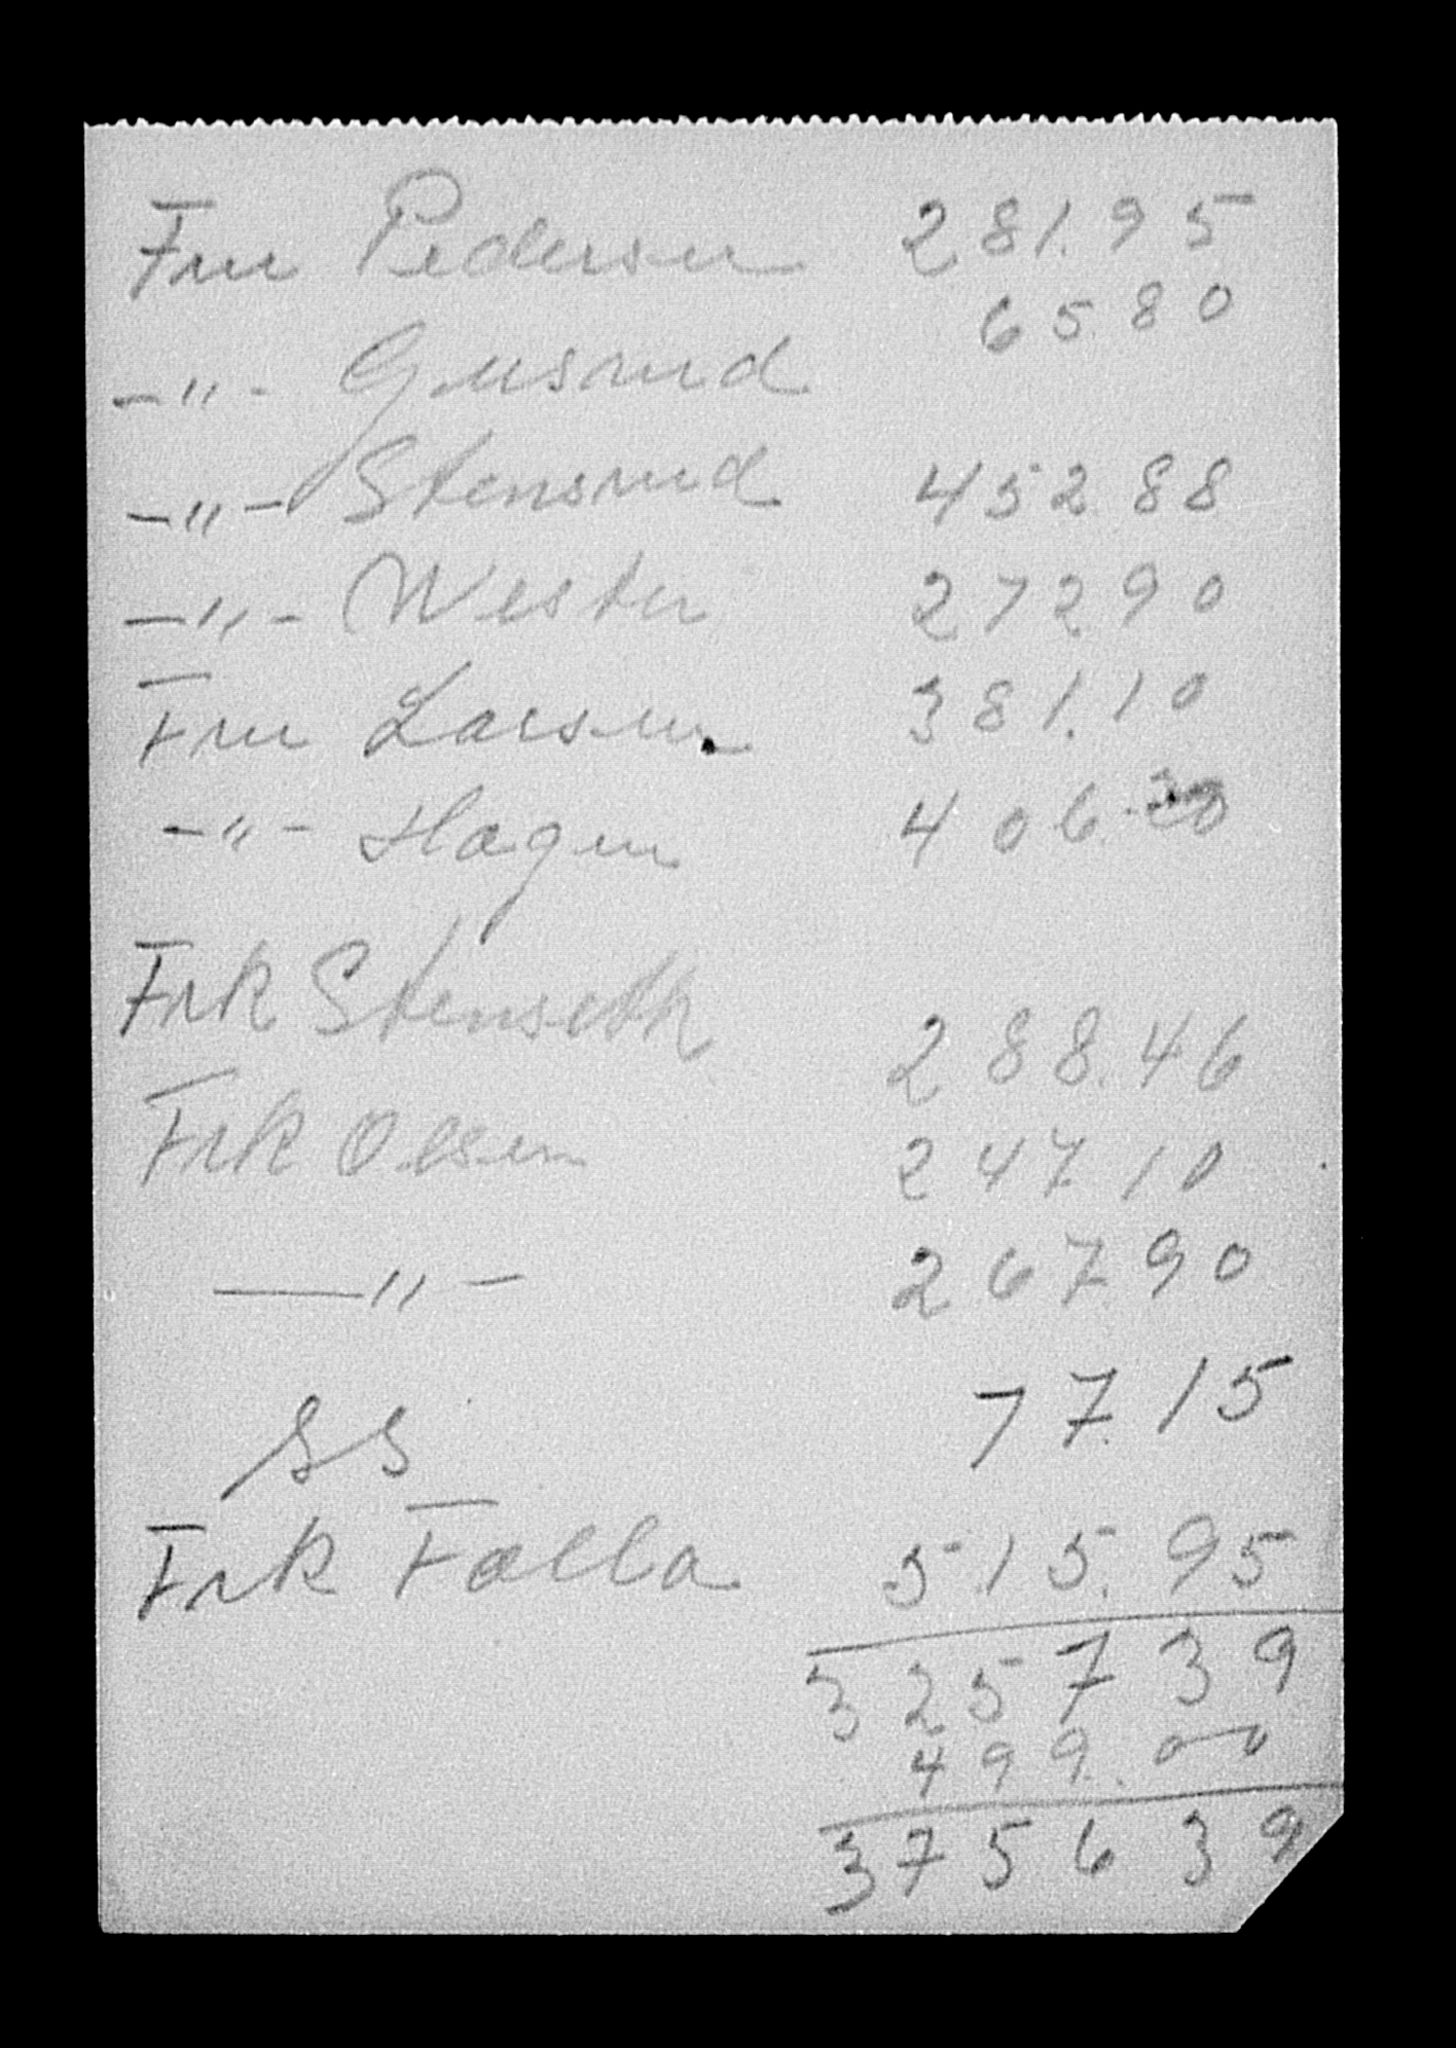 Fru Pedersen 281.95
65.80
-"- Gusrud
-"- Stensrud 452.88
-"- Wester 272 90
Fru Larsen 381.10
-"- Hagen 406.20
Frk Stenseth 288.46
Frk Olsen 247.10
-"- 267.90
SS 77.15
Frk Falla 515.95
3257 39
499.00
3756 39